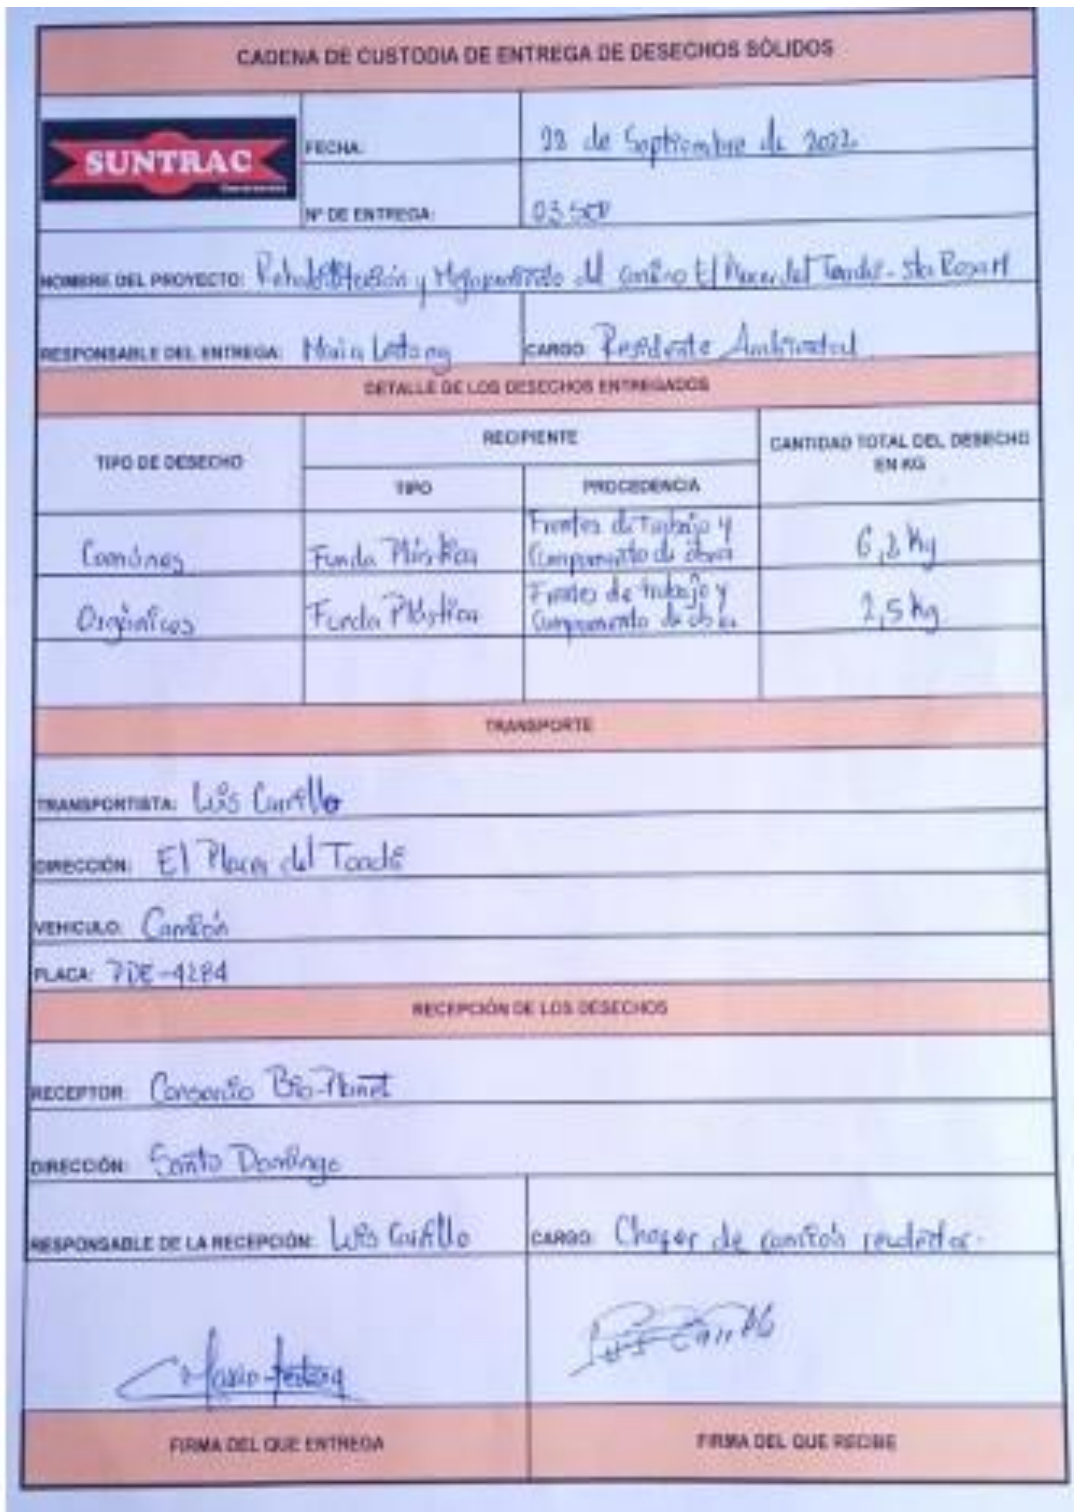 CADENA DE CUSTODIA DE ENTREGA DE DESECHOS SÓLIDOS
SUNTRAC
FECHA: 22 de Septiembre de 2022
N° DE ENTREGA: 03
NOMBRE DEL PROYECTO: Rehabilitación y Mejoramiento del camino El Placer del Toachi - Sta Rosa
RESPONSABLE DEL ENTREGA: CARGO: Residente Ambiental
DETALLE DE LOS DESECHOS ENTREGADOS
TIPO DE DESECHO RECIPIENTE CANTIDAD TOTAL DEL DESECHO EN KG
TIPO PROCEDENCIA
Comúnes Funda Plástica Frentes de trabajo y Campamento de obra 6,2 Kg
Orgánicos Funda Plástica Frentes de trabajo y Campamento de obra 2,5 Kg
TRANSPORTE
TRANSPORTISTA: Luis Carrillo
DIRECCIÓN: El Placer del Toachi
VEHICULO: Camión
PLACA:
RECEPCIÓN DE LOS DESECHOS
RECEPTOR: Consorcio Bio-Planet
DIRECCIÓN: Santo Domingo
RESPONSABLE DE LA RECEPCIÓN: Luis Carrillo CARGO: Chofer de camión
FIRMA DEL QUE ENTREGA FIRMA DEL QUE RECIBE